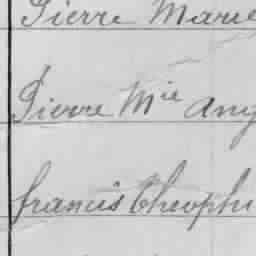 Pierre Marie
Pierre Mie Ang
francis Théophi